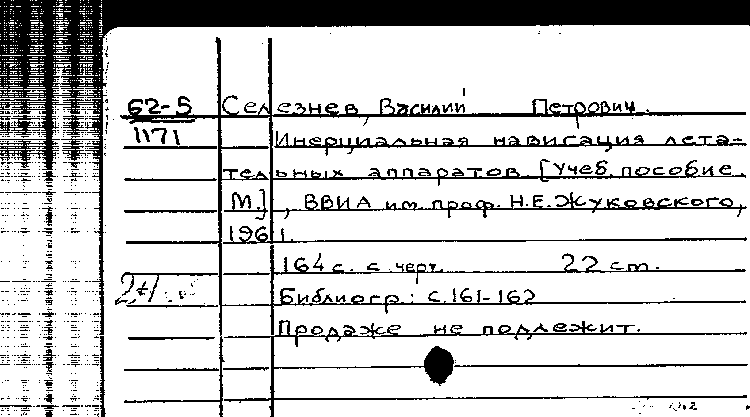 62-5 Селезнев, Василий Петрович.
1171 Инерциальная навигация лета-
тельных аппаратов. [Учеб. пособие.
М.], ВВИА им. проф. Н.Е. Жуковского,
1961.
164 с. с черт. 22 cm.
Библиогр.: с. 161-162
Продаже не подлежит.